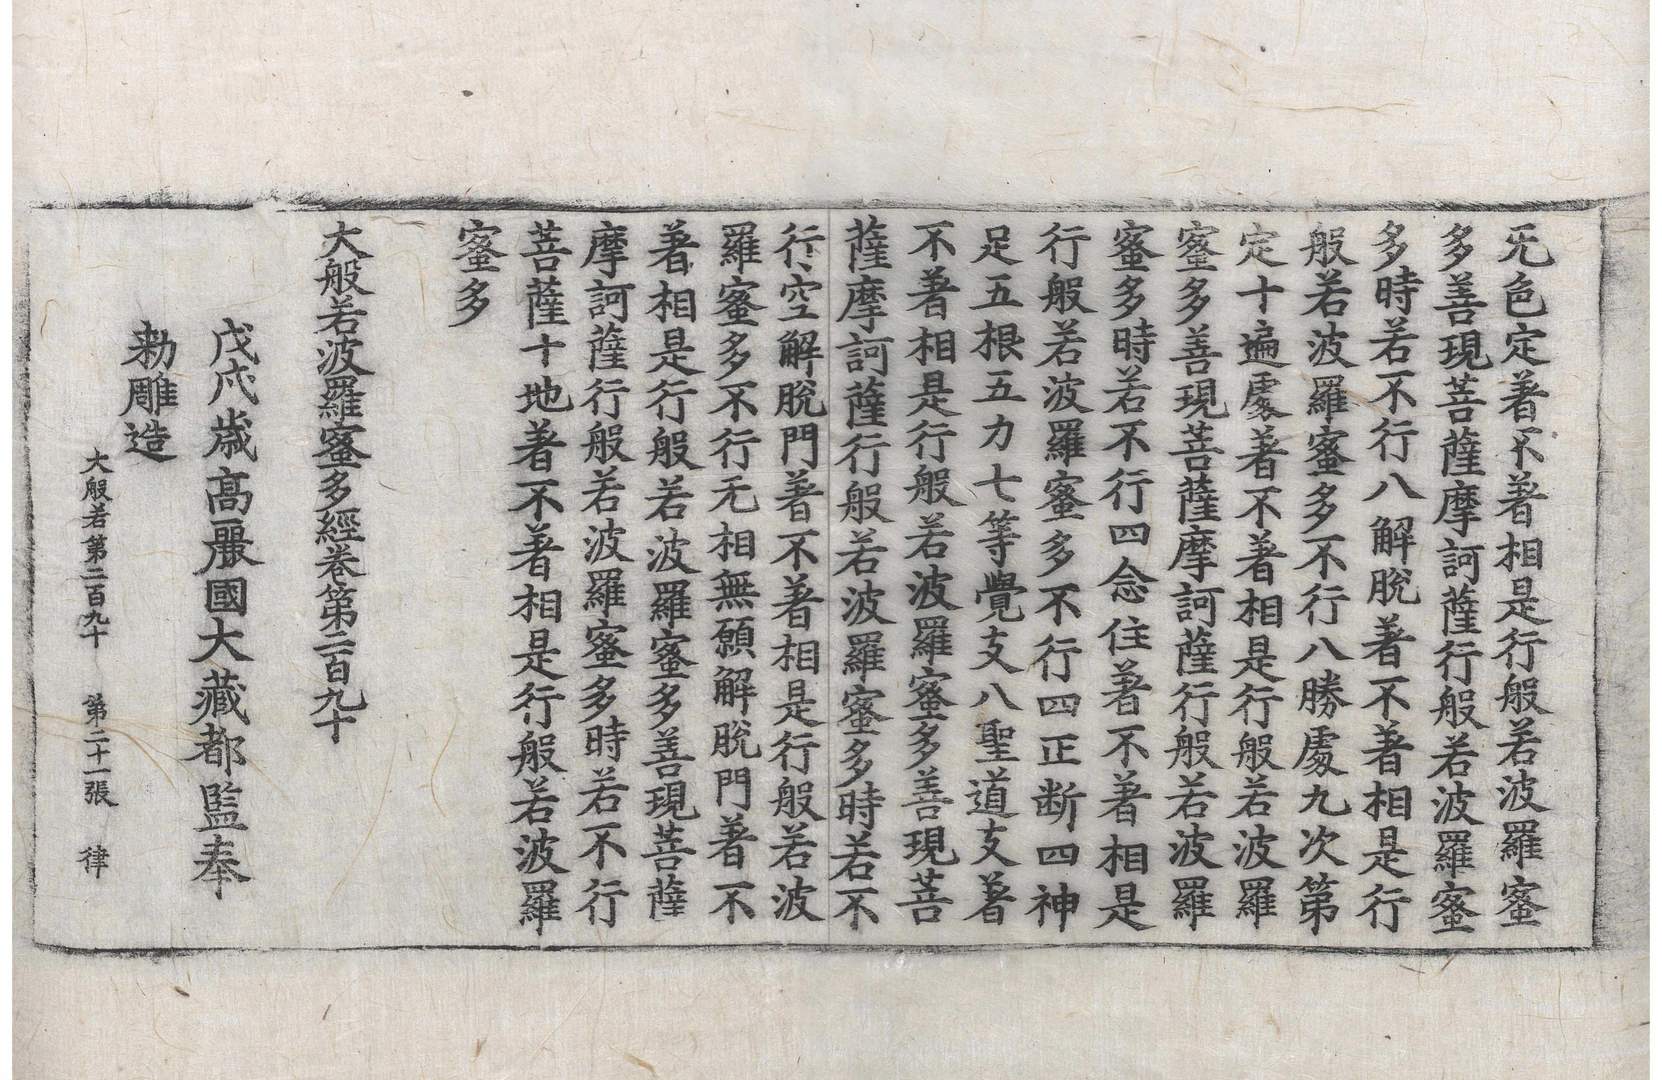 无色定著不著相是行般若波羅蜜
多善現菩薩摩訶薩行般若波羅蜜
多時若不行八解脫著不著相是行
般若波羅蜜多不行八勝處九次第
定十遍處著不著相是行般若波羅
蜜多善現菩薩摩訶薩行般若波羅
蜜多時若不行四念住著不著相是
行般若波羅蜜多不行四正断四神
足五根五力七等覺支八聖道支著
不著相是行般若波羅蜜多善現菩
薩摩訶薩行般若波羅蜜多時若不
行空解脫門著不著相是行般若波
羅蜜多不行无相無願解脫門著不
著相是行般若波羅蜜多善現菩薩
摩訶薩行般若波羅蜜多時若不行
菩薩十地著不著相是行般若波羅
蜜多
大般若波羅蜜多經卷第二百九十
戊戌歲高麗國大藏都監奉
勅雕造
大般若第二百九十 第二十一張 律